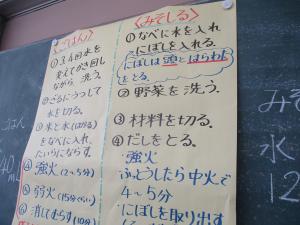 〈ごはん〉
①3,4回水を
変えてかき回し
ながら、洗う。
②ざるにうつして
水を切る。
③米と水(はかる)
をなべに入れ、
たいらにならす。
④強火(2~5分)
⑤弱火(15分ぐらい)
⑥消してむらす(10分)
〈みそしる〉
①なべに水を入れ
にぼしを入れる。
にぼしは頭とはらわた
をとる。
②野菜を洗う。
③材料を切る。
④だしをとる。
強火
ふっとうしたら中火で
4~5分
にぼしを取り出す
ごはん
40
mL
みそ
水
12